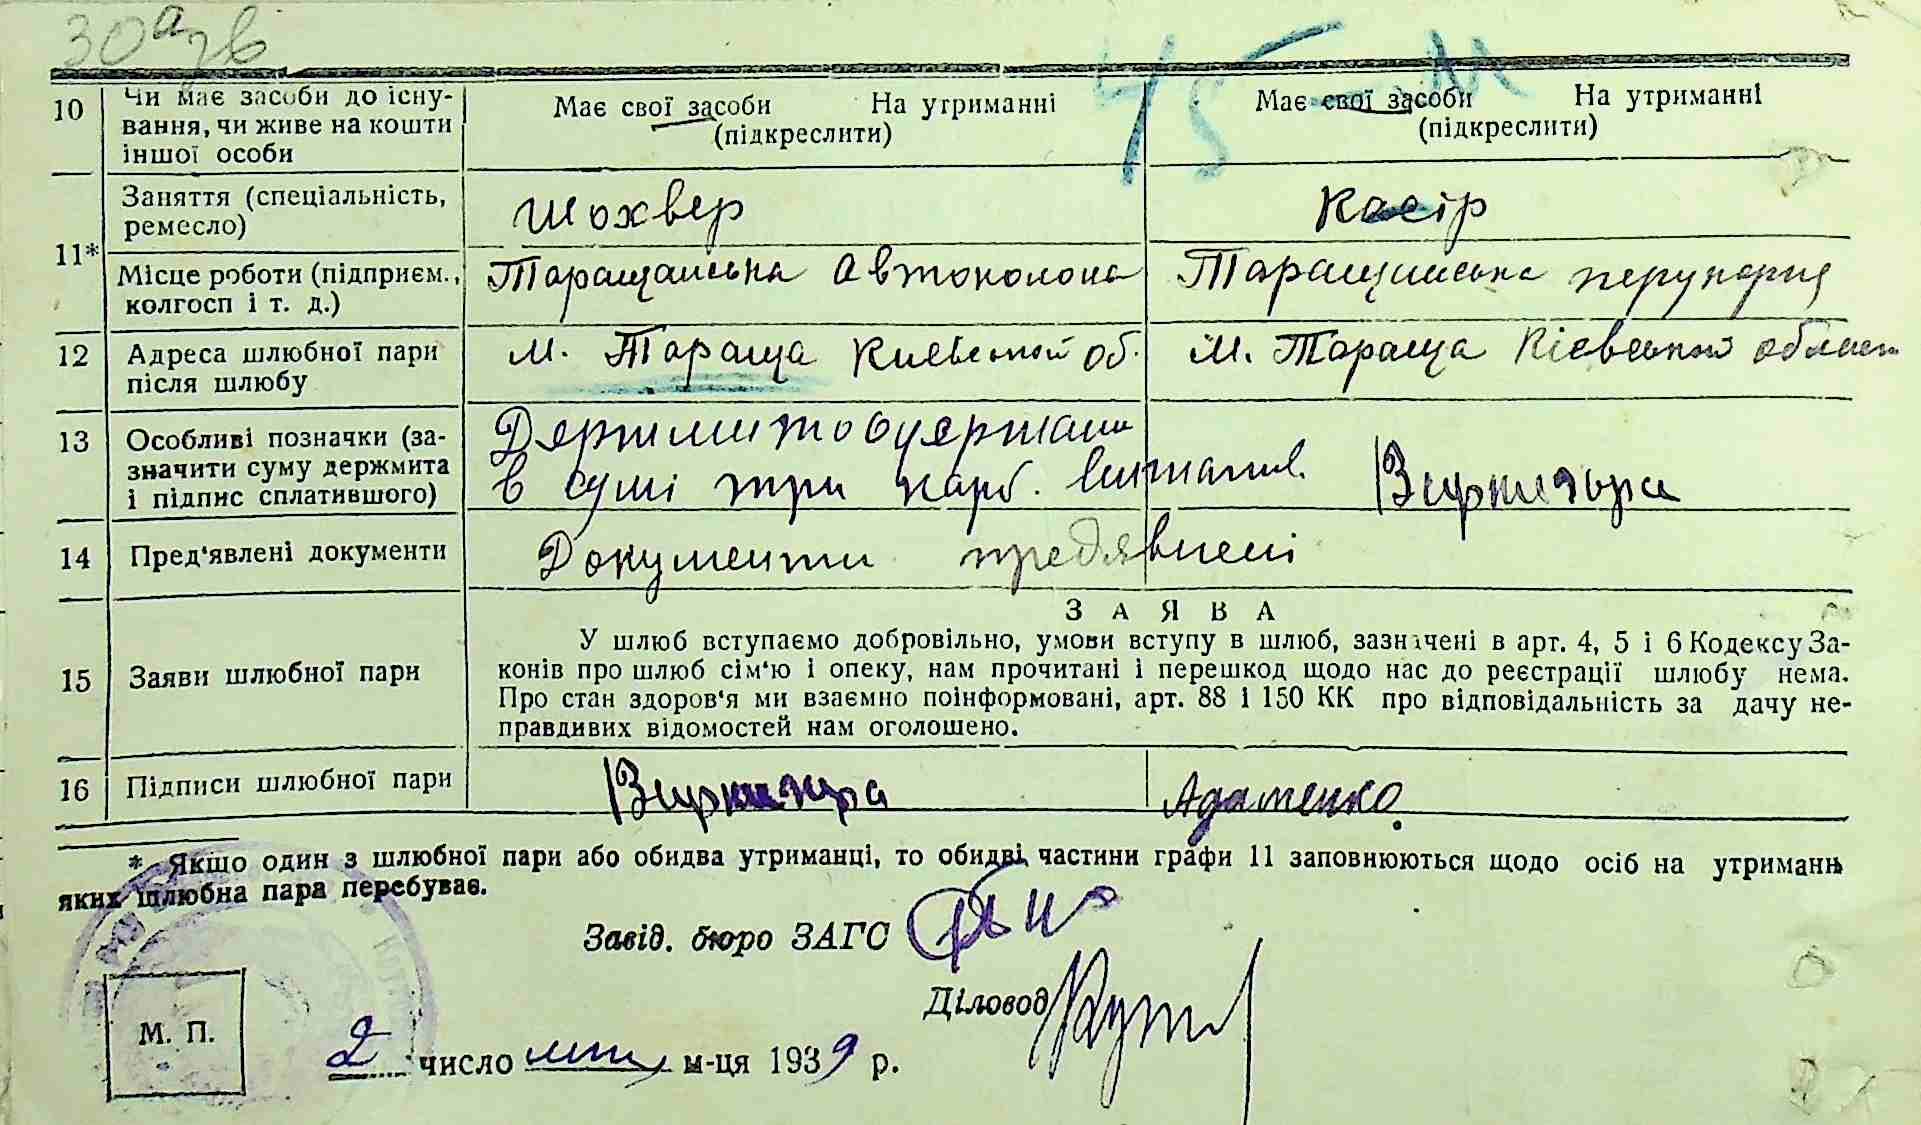 30 а зв
75 - М
10 Чи має засоби до існу-
вання, чи живе на кошти
іншої особи
Має свої засоби На утриманні
(підкреслити)
Має свої засоби На утриманні
(підкреслити)
11* Заняття (спеціальність,
ремесло)
Шохвер
Касір
Місце роботи (підприєм.,
колгосп і т. д.)
Таращанська Автоколона
Таращанська перукарня
12 Адреса шлюбної пари
після шлюбу
м. Тараща Київської об.
м. Тараща Кієвської област
13 Особливі позначки (за-
значити суму держмита
і підпис сплатившого)
Держмито
в сумі три карб.
14 Пред'явлені документи
Документи предявлені
15 Заяви шлюбної пари
ЗАЯВА
У шлюб вступаємо добровільно, умови вступу в шлюб, зазначені в арт. 4, 5 і 6 Кодексу За-
конів про шлюб сім'ю і опеку, нам прочитані і перешкод щодо нас до реєстрації шлюбу нема.
Про стан здоров'я ми взаємно поінформовані, арт. 88 і 150 КК про відповідальність за дачу не-
правдивих відомостей нам оголошено.
16 Підписи шлюбної пари
Адаменко
* Якщо один з шлюбної пари або обидва утриманці, то обидві частини графи 11 заповнюються щодо осіб на утриманні
яких шлюбна пара перебуває.
Завід. бюро ЗАГС
Діловод
М. П.
2 число м-ця 1939 р.